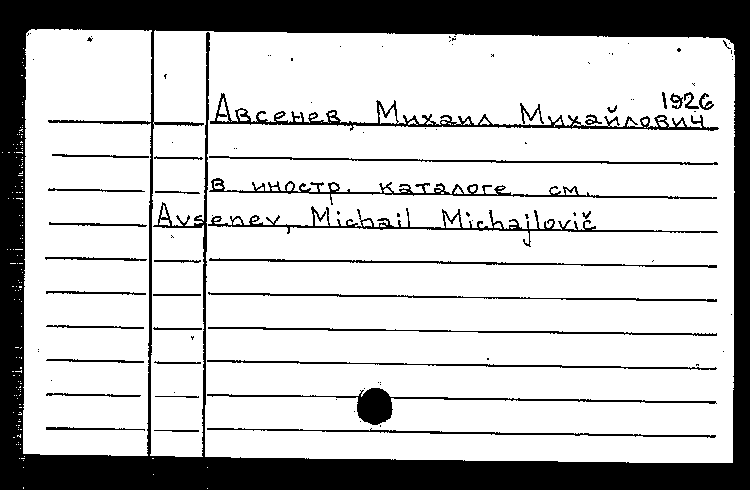 1926
Авсенев, Михаил Михайлович
в иностр. каталоге см.
Avsenev, Michail Michajlovič